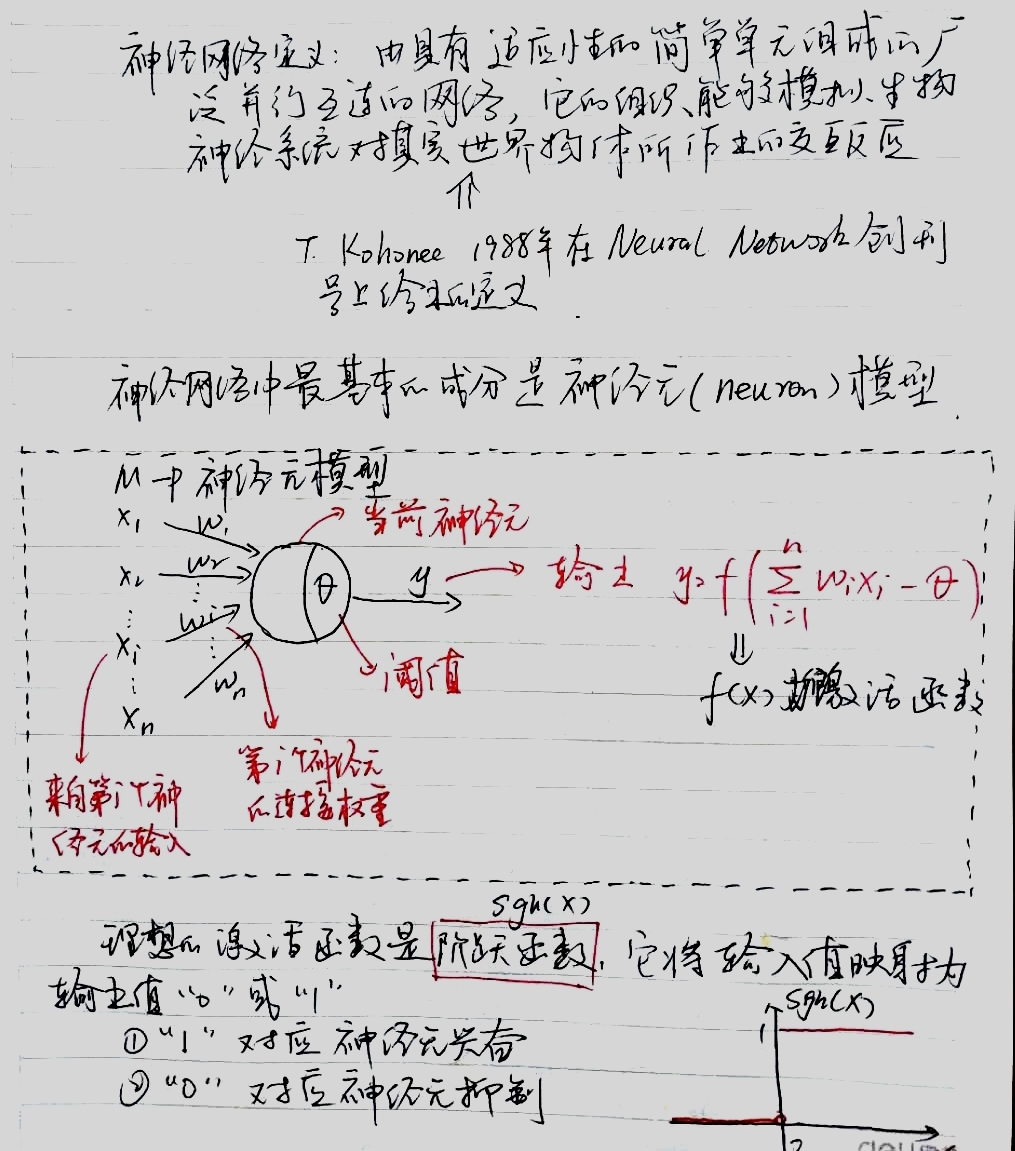 神经网络定义：由具有适应性的简单单元组成的广
泛并行互连的网络，它的组织能够模拟生物
神经系统对真实世界物体所作出的交互反应
⇑
T. Kohonee 1988年在 Neural Network 创刊
号上给出的定义
神经网络中最基本的成分是神经元(neuron)模型.
M-P 神经元模型
x₁ w₁ 当前神经元
x₂ w₂ θ y 输出 y=f(∑ⁿᵢ₌₁ wᵢxᵢ - θ)
⋮ ⋮ ⇓
xᵢ wᵢ 阈值 f(x) 激活函数
⋮ ⋮ wₙ
xₙ
第i个神经元
的连接权重
来自第i个神
经元的输入
sgn(x)
理想的激活函数是阶跃函数，它将输入值映射为
输出值“0”或“1”
①“1” 对应神经元兴奋
②“0” 对应神经元抑制
sgn(x)
1